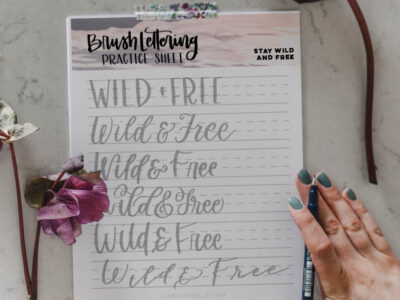 Brush Lettering
PRACTICE SHEET
STAY WILD
AND FREE
WILD & FREE
Wild & Free
Wild & Free
Wild & Free
Wild & Free
Wild & Free